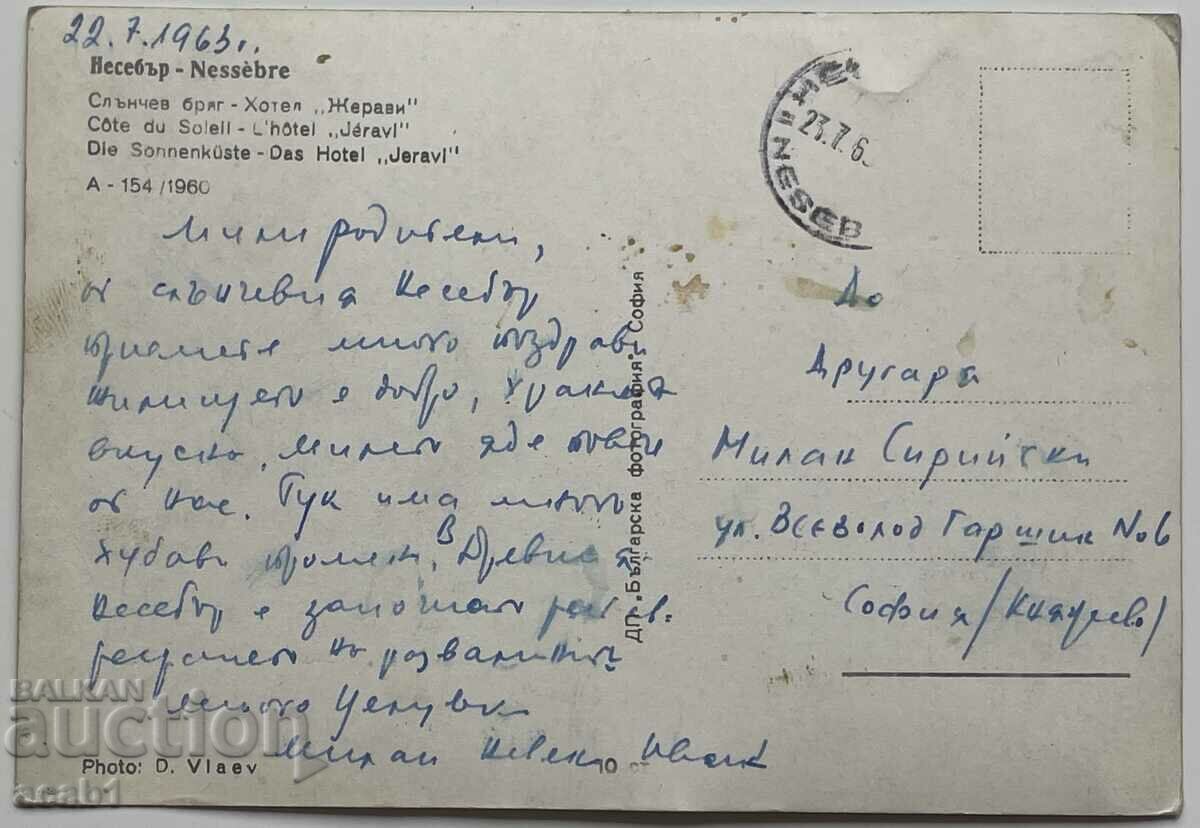 22.7.1963г.
Несебър - Nessèbre
Слънчев бряг - Хотел „Жерави"
Côte du Soleil - L'hôtel „Jéravi"
Die Sonnenküste - Das Hotel „Jeravi"
A - 154 /1960
Мили родители,
от слънчевия Несебър
приемете много поздрави
жилището е добро, храната
вкусна. Милето яде повече
от нас. Тук има много
хубави промени. В Древния
Несебър е започнато
на развалините
Много целувки
Милан
Photo: D. Vlaev
10 ст
ДП „Българска фотография", София
НЕ
NESEB
23.7.6
До
Другаря
Милан Сирийски
ул. Всеволод Гаршин No6
София /Княжево/
BALKAN
auction
acab1